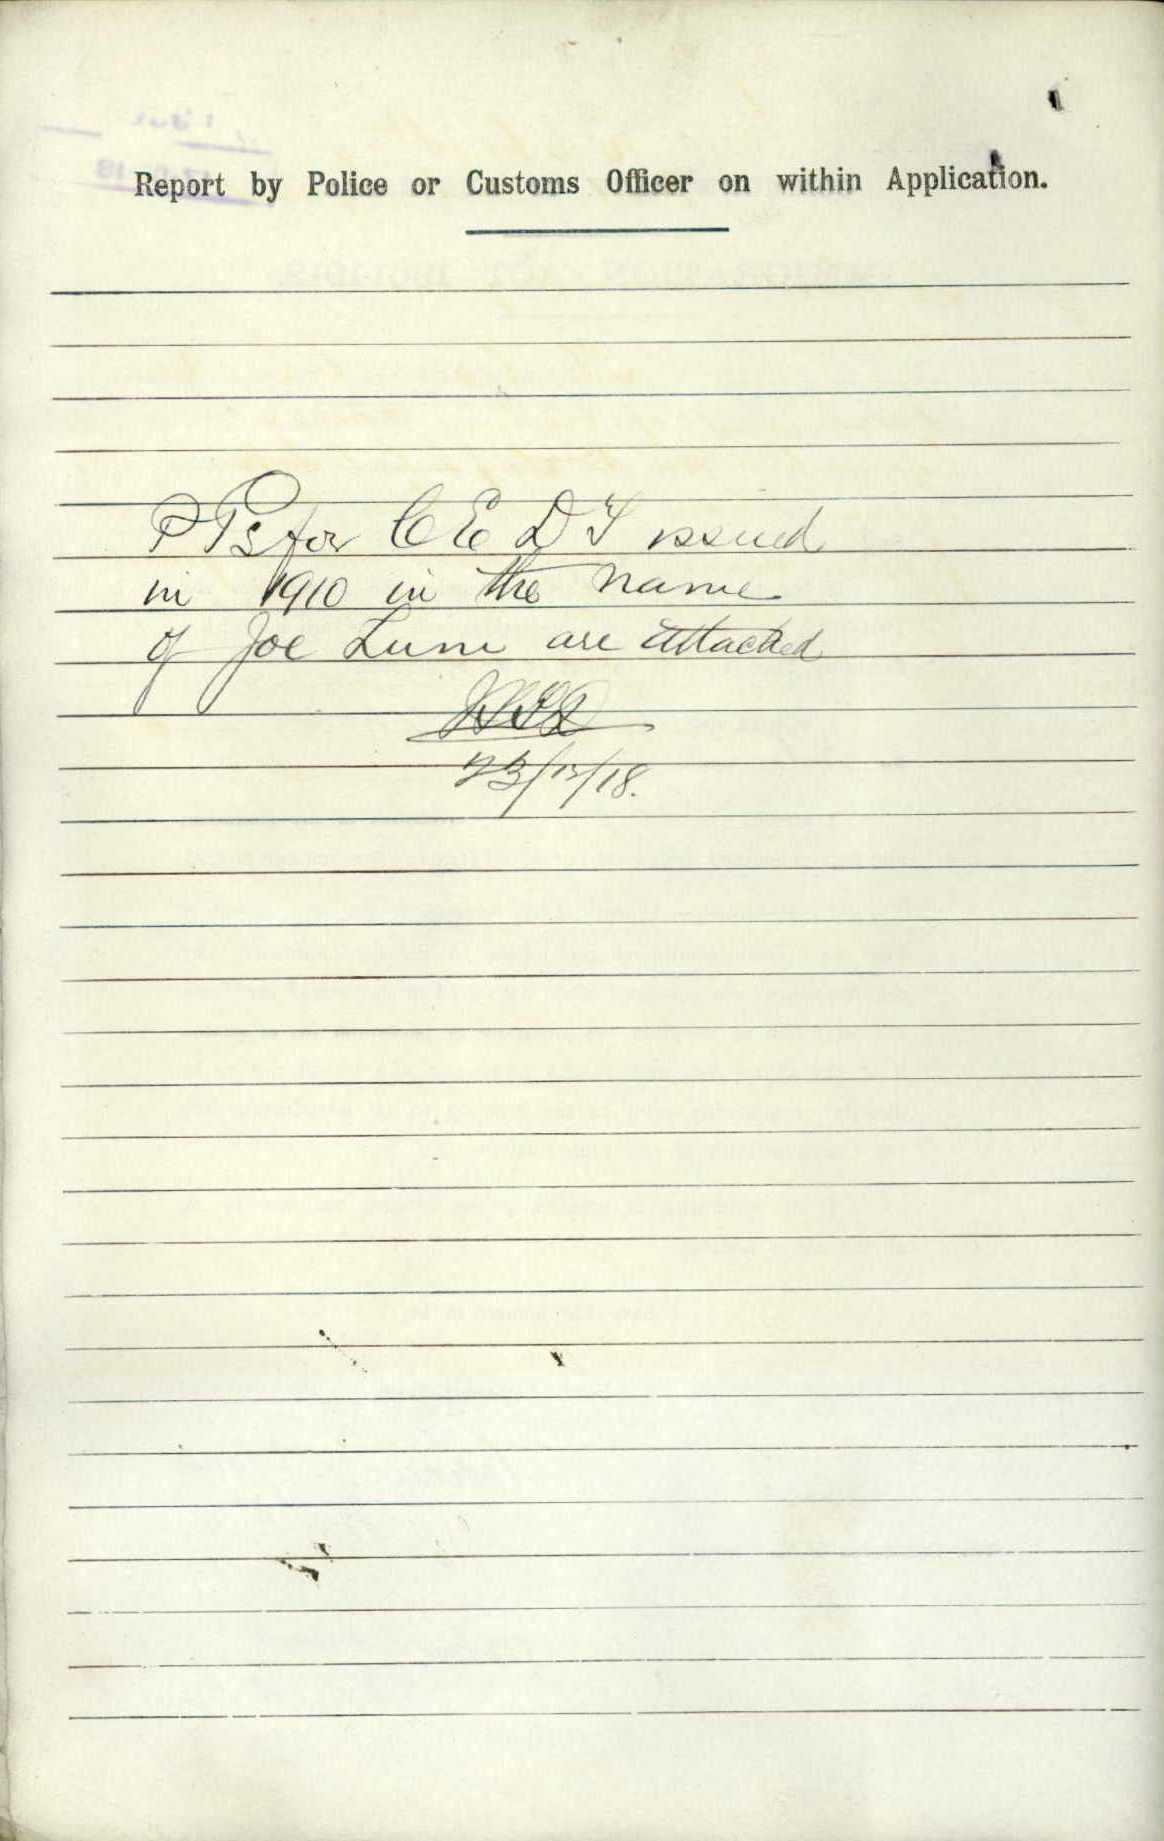 Report by Police or Customs Officer on within Application.
P Ps for C E D T issued
in 1910 in the name
of Joe Lum are attached
23/12/18.